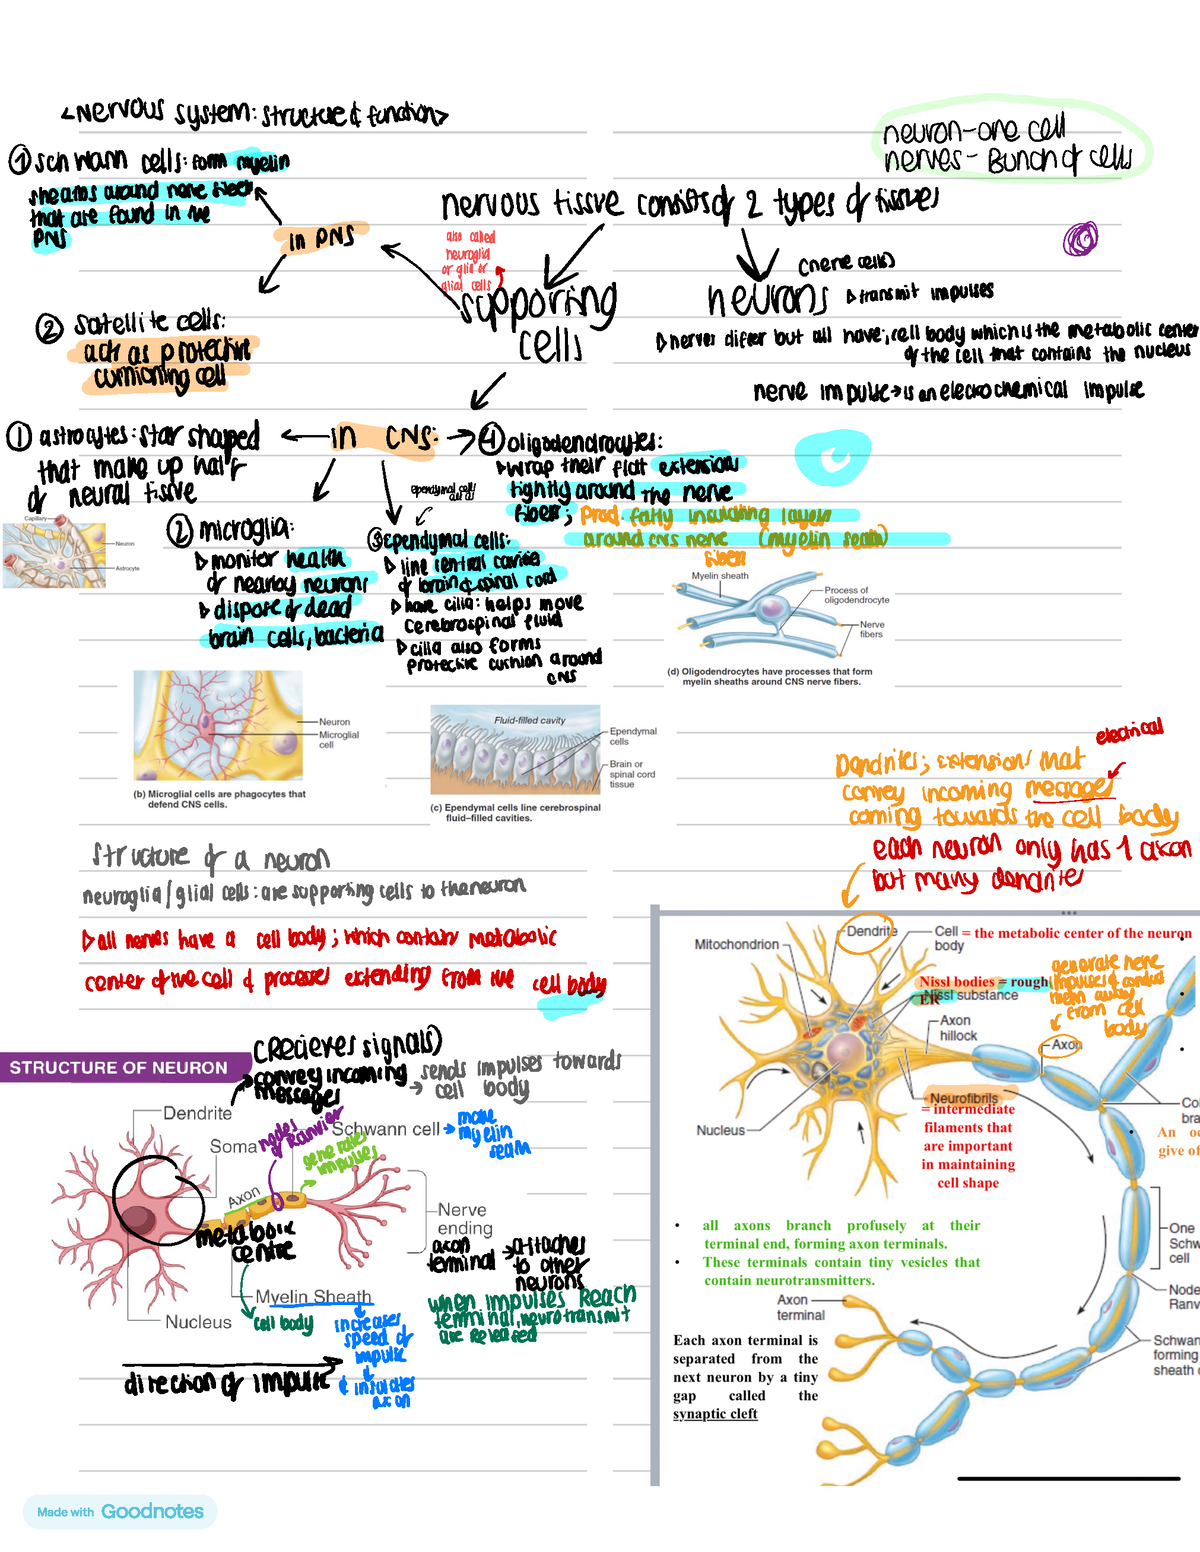 <Nervous system: structure & function>
neuron-one cell
nerves- Bunch of cells
① schwann cells: form myelin
sheaths around nerve fibers
that are found in the
PNS
in PNS
② satellite cells:
acts as protective
cushioning cell
nervous tissue consists of 2 types of tissues
also called
neuroglia
or glia or
glial cells
supporting
cells
(nerve cells)
neurons
▷ transmit impulses
▷ nerves differ but all have; cell body which is the metabolic center
of the cell that contains the nucleus
nerve impulse → is an electrochemical impulse
in CNS:
① astrocytes: star shaped
that make up half
of neural tissue
Capillary
Neuron
Astrocyte
② microglia:
▷ monitor health
of nearby neurons
▷ dispose of dead
brain cells, bacteria
ependymal cells
③ Ependymal cells:
▷ line central cavities
of brain & spinal cord
▷ have cilia: helps move
cerebrospinal fluid
▷ cilia also forms
protective cushion around
CNS
④ oligodendrocytes:
▷ wrap their flat extensions
tightly around the nerve
fibers; Prod. fatty insulating layers
around CNS nerve (myelin seath)
fibers
Myelin sheath
Process of
oligodendrocyte
Nerve
fibers
(d) Oligodendrocytes have processes that form
myelin sheaths around CNS nerve fibers.
Neuron
Microglial
cell
(b) Microglial cells are phagocytes that
defend CNS cells.
Fluid-filled cavity
Ependymal
cells
Brain or
spinal cord
tissue
(c) Ependymal cells line cerebrospinal
fluid–filled cavities.
electrical
Dendrites; extensions that
convey incoming messages
coming towards the cell body
each neuron only has 1 axon
but many dendrites
structure of a neuron
neuroglia / glial cells: are supporting cells to the neuron
▷ all nerves have a cell body; which contain metabolic
center of the cell & processes extending from the cell body
STRUCTURE OF NEURON
(recieves signals)
convey incoming
messages
sends impulses towards
→ cell body
Dendrite
Soma
nodes of Ranvier
generates
impulses
Schwann cell
→ make
myelin
seath
Axon
metabolic
centre
Nerve
ending
axon
terminal
→ attaches
to other
neurons
when impulses reach
terminal, neurotransmit
are released
Myelin Sheath
Nucleus
cell body
increases
speed of
impulse
& insulates
axon
direction of impulse
Mitochondrion
Dendrite
Cell = the metabolic center of the neuron
body
Nissl bodies = rough
ER
Nissl substance
generate nerve
impulses & conduct
them away
from cell
body
Axon
hillock
Axon
Neurofibrils
= intermediate
filaments that
are important
in maintaining
cell shape
Nucleus
Col
bra
An oc
give of
• all axons branch profusely at their
terminal end, forming axon terminals.
• These terminals contain tiny vesicles that
contain neurotransmitters.
One
Schw
cell
Node
Ranv
Schwan
forming
sheath o
Axon
terminal
Each axon terminal is
separated from the
next neuron by a tiny
gap called the
synaptic cleft
Made with Goodnotes